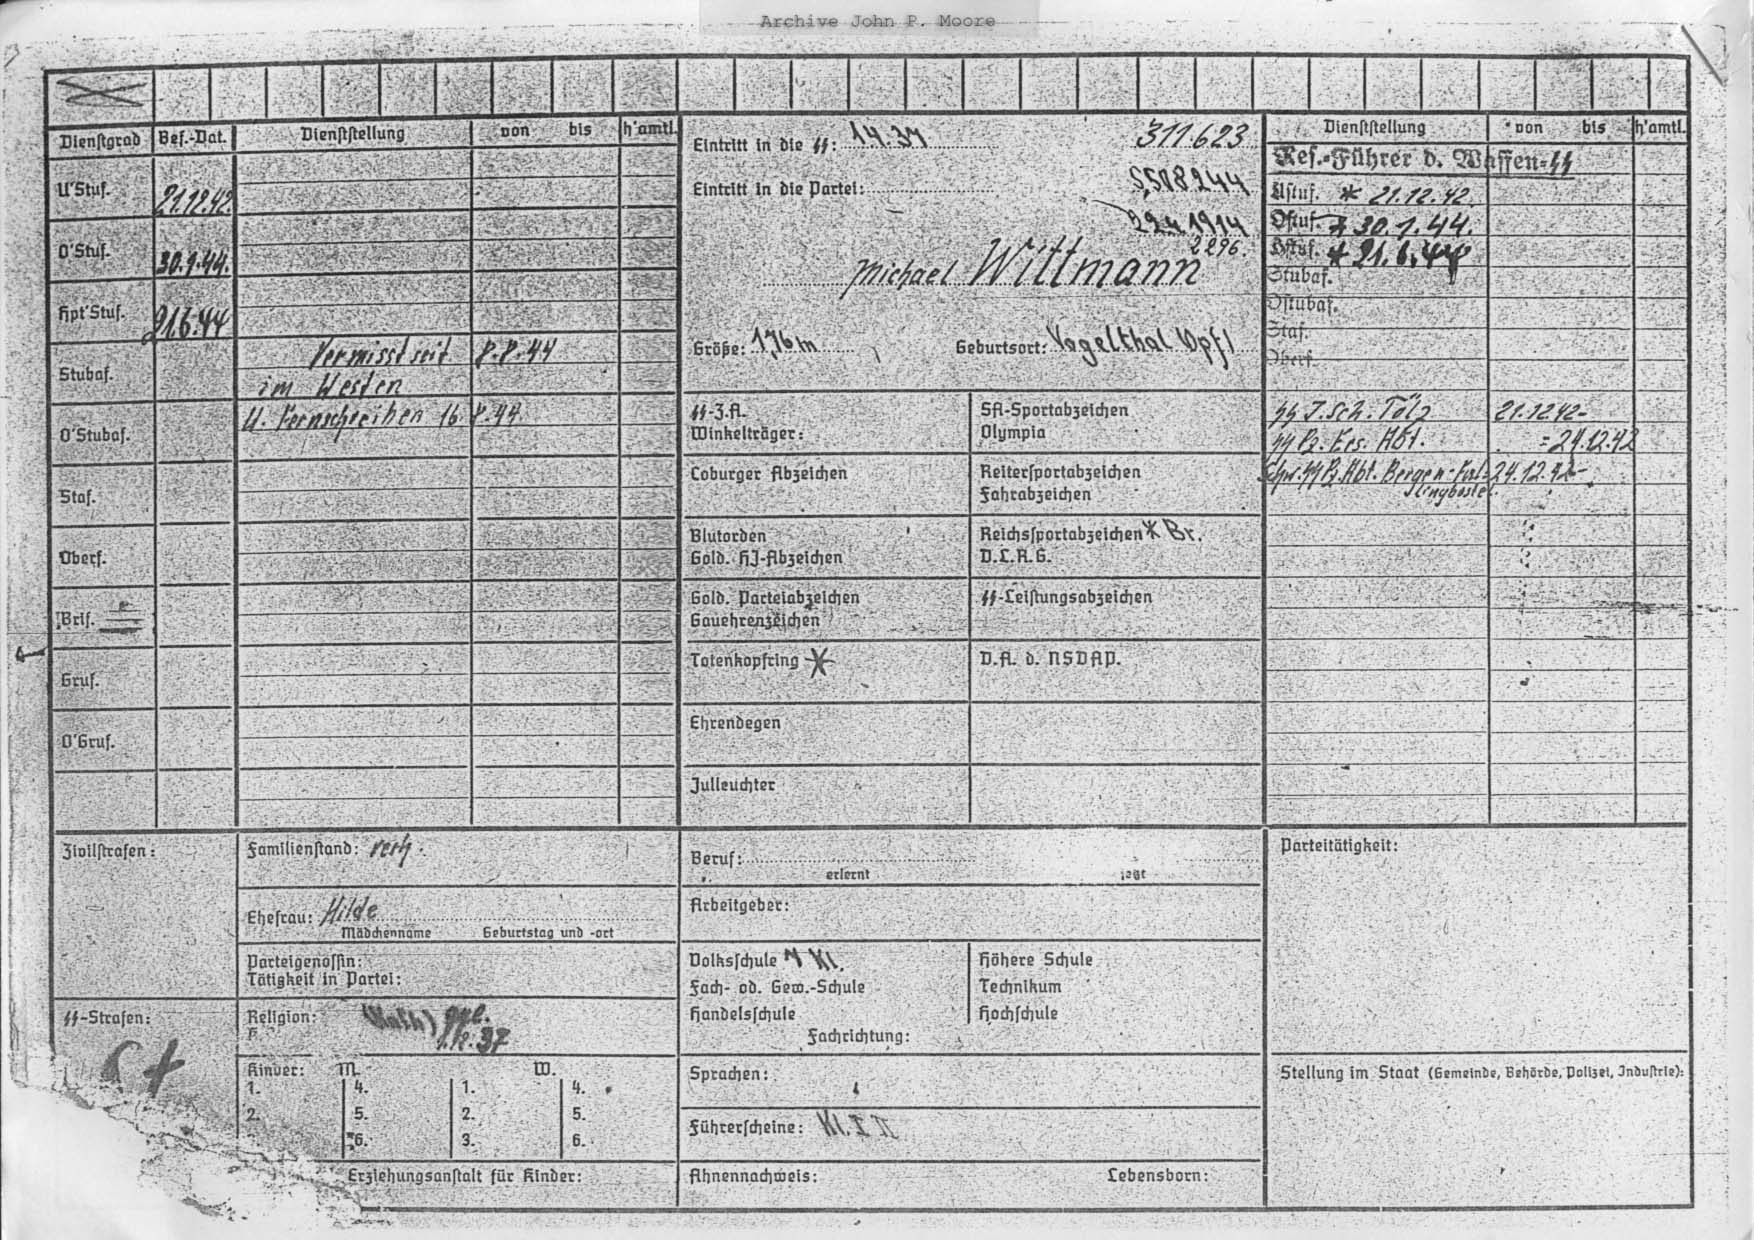 Archive John P. Moore
Dienstgrad
Bef.-Dat.
Dienststellung
von bis
h'amtl.
U'Stuf.
21.12.42.
O'Stuf.
Hpt'Stuf.
21.6.44
Stubaf.
O'Stubaf.
Staf.
Oberf.
Brif.
Gruf.
O'Gruf.
Vermisst seit 8.8.44
im Westen
U. Fernschreiben 16.8.44.
Eintritt in die SS: 1.4.37 311.623
Eintritt in die Partei: 5,508244
22.4.1914
2296.
Michael Wittmann
Größe: 1,76 m
Geburtsort: Vogelthal Opf
SS-Z.A.
Winkelträger:
SA-Sportabzeichen
Olympia
Coburger Abzeichen
Reitersportabzeichen
Fahrabzeichen
Blutorden
Gold. HJ-Abzeichen
Reichssportabzeichen * Br.
D.L.R.G.
Gold. Parteiabzeichen
Gauehrenzeichen
SS-Leistungsabzeichen
Totenkopfring *
D.A. d. NSDAP.
Ehrendegen
Julleuchter
Dienststellung
von bis
h'amtl.
Res.-Führer d. Waffen-SS
Ustuf. * 21.12.42.
Ostuf. * 30.1.44.
Hstuf. * 21.6.44
Stubaf.
Ostubaf.
Staf.
Oberf.
SS J. Sch. Tölz 21.12.42-
SS Pz. Ers. Abt. =24.12.42
Schw. SS Pz. Abt. Bergen- 24.12.42-
Zivilstrafen:
SS-Strafen:
Familienstand: verh.
Ehefrau: Hilde
Mädchenname Geburtstag und -ort
Parteigenossin:
Tätigkeit in Partei:
Religion: ggl.
37
Kinder: m. w.
1. 4. 1. 4.
2. 5. 2. 5.
6. 3. 6.
Erziehungsanstalt für Kinder:
Beruf:
erlernt jetzt
Arbeitgeber:
Volksschule 7 Kl.
Fach- od. Gew.-Schule
Handelsschule
Höhere Schule
Technikum
Hochschule
Fachrichtung:
Sprachen:
Führerscheine: Kl. I II
Ahnennachweis: Lebensborn:
Parteitätigkeit:
Stellung im Staat (Gemeinde, Behörde, Polizei, Industrie):